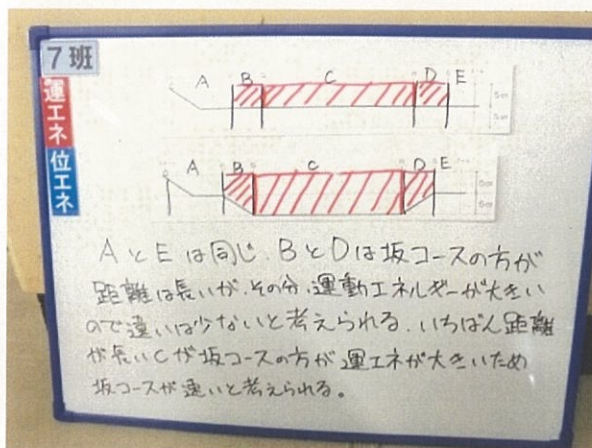 7班
運エネ
位エネ
A B C D E
5cm
5cm
A B C D E
5cm
5cm
AとEは同じ.BとDは坂コースの方が
距離は長いが,その分,運動エネルギーが大きい
ので違いは少ないと考えられる.いちばん距離
が長いCが坂コースの方が運エネが大きいため
坂コースが速いと考えられる。